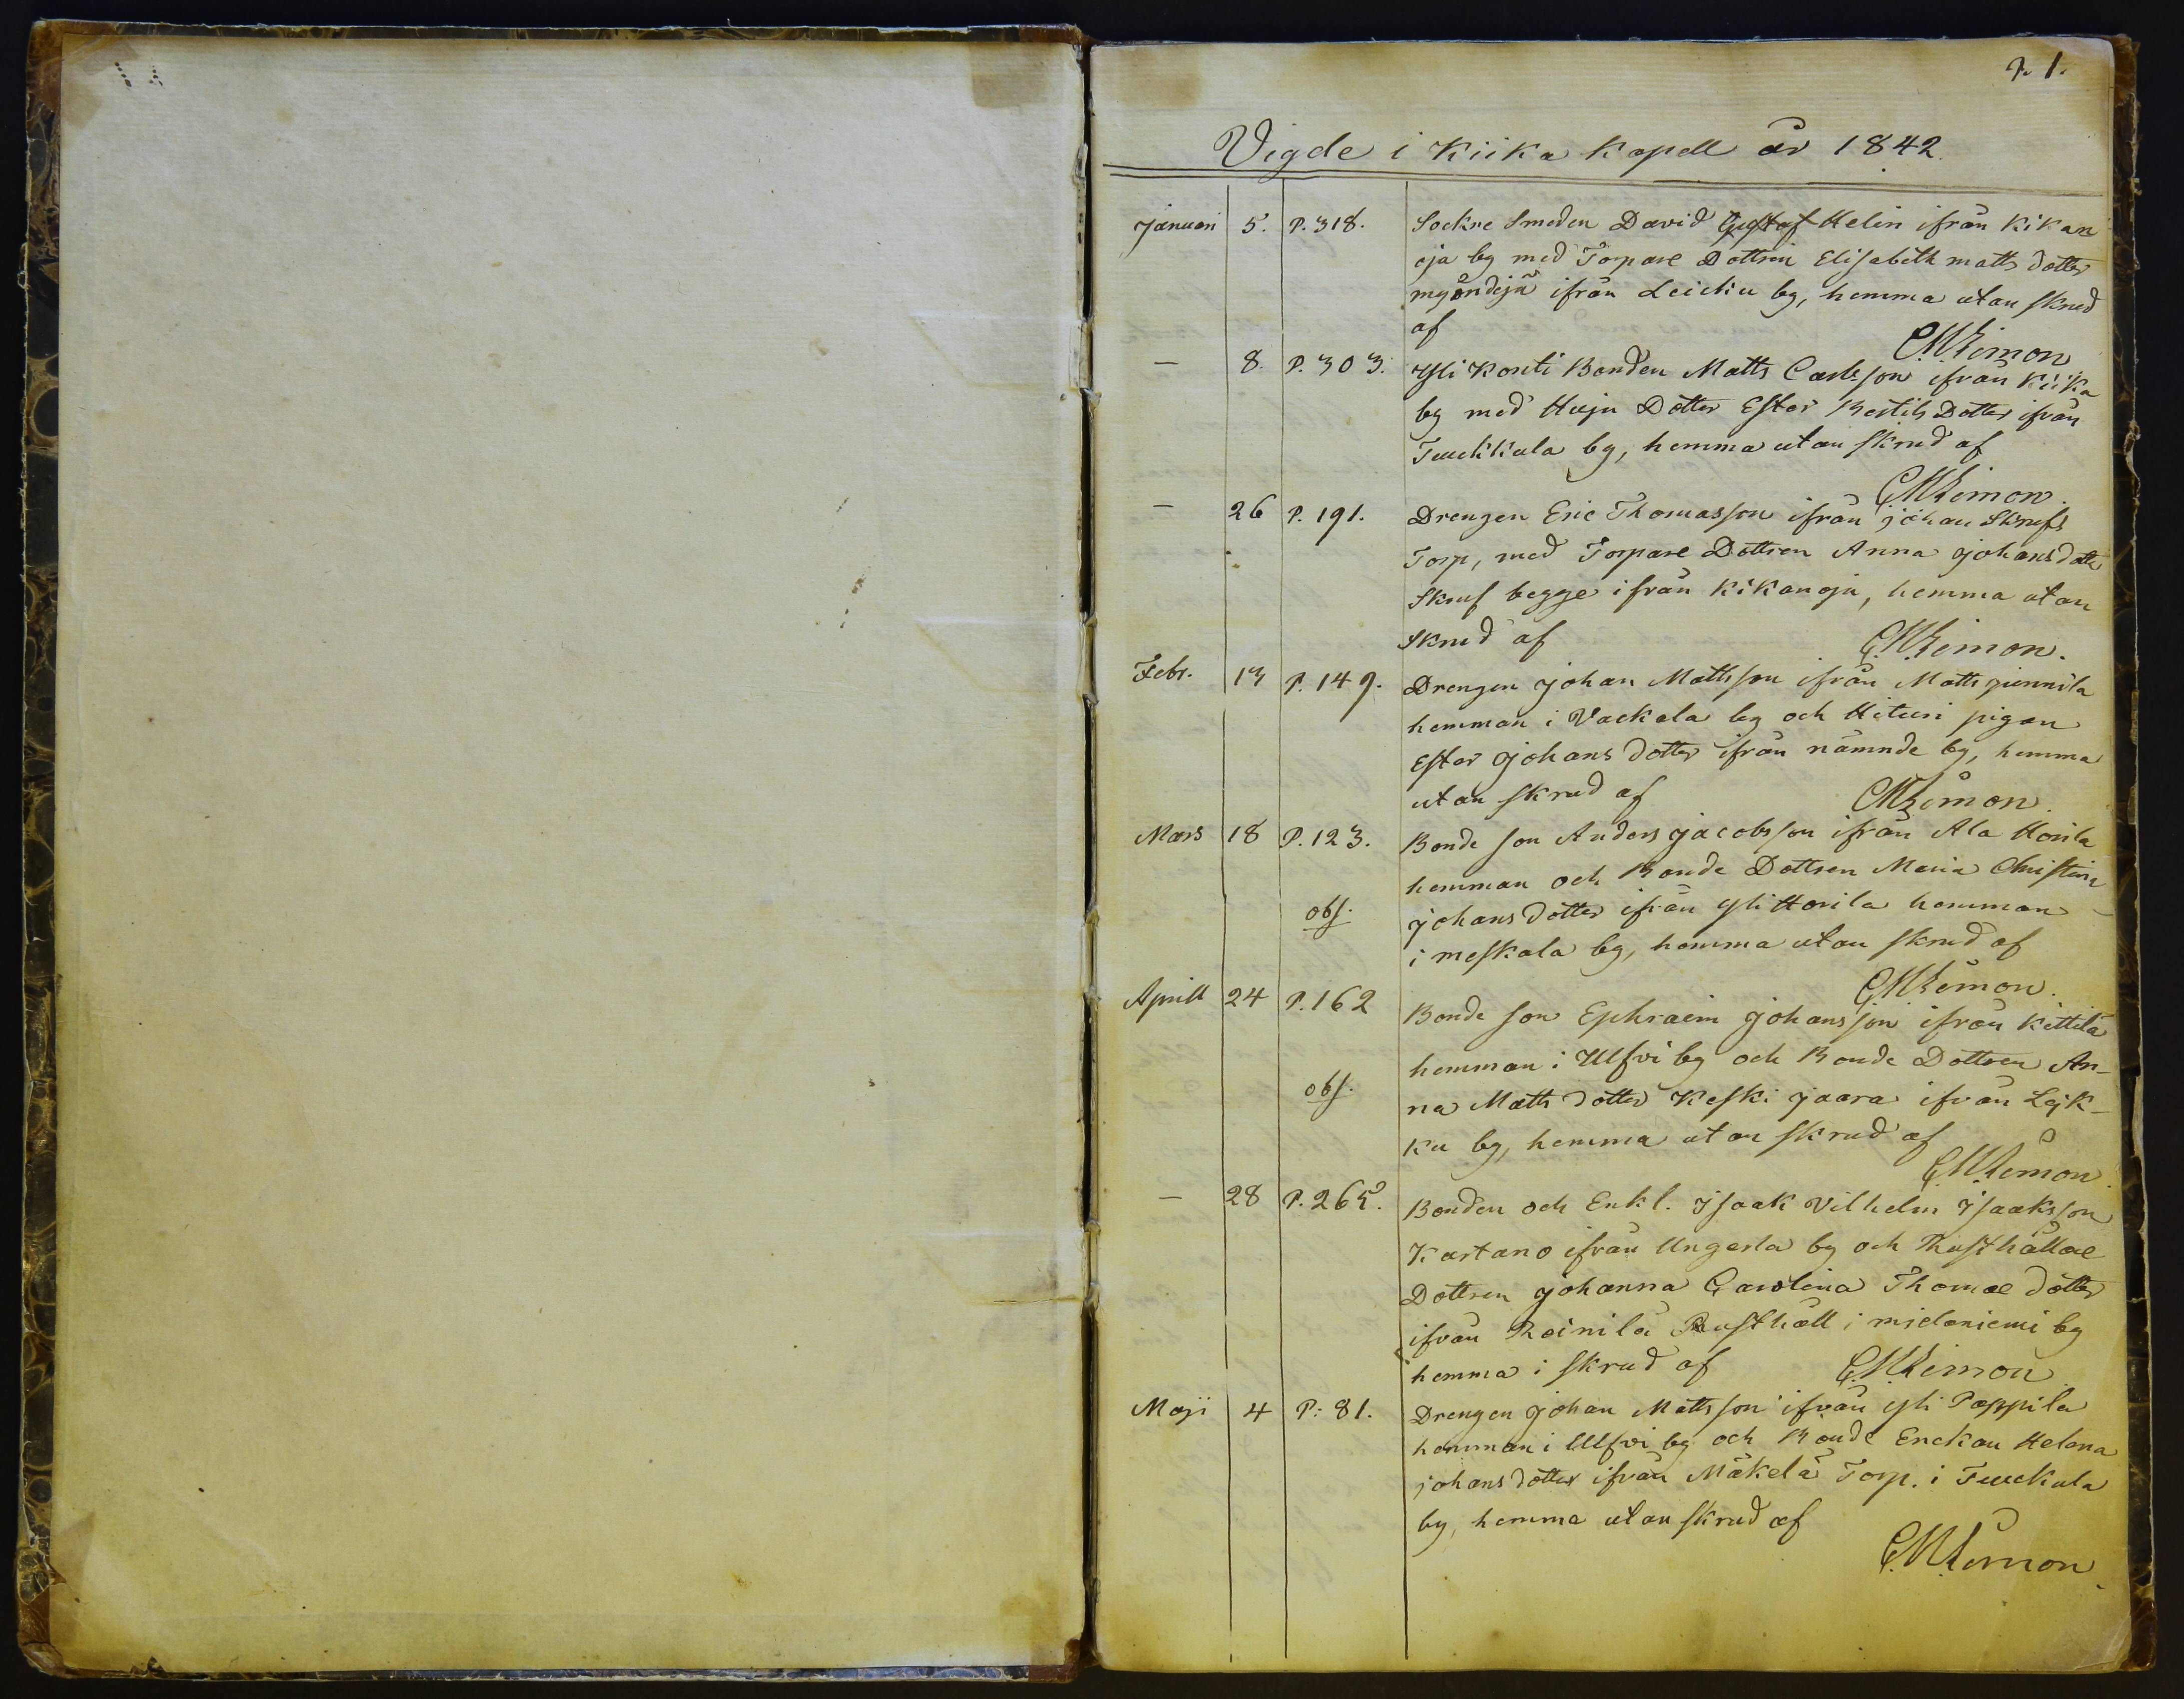 P. 1.
Vigde i Kiika Kapell år 1842.
Januari 5. P. 318. Sockne Smeden David Gustaf Helin ifrån Kikan
oja by med Torpare Dottren Elisabeth Matts dotter
ifrån Leicku by, hemma utan skrud
af CMLimon
— 8. P. 303. Yli Konti Bonden Matts Carlsson ifrån Kiika
by med Huju Dotter Ester Bertils Dotter ifrån
Tuckkala by, hemma utan skrud af
CMLimon.
— 26 P. 191. Drengen Eric Thomasson ifrån johan Skrufs
Torp, med Torpare Dottren Anna johansdotter
Skruf begge ifrån Kikanoja, hemma utan
Skrud af CMLimon.
Febr. 13 P. 149. Drengen johan Mattsson ifrån Matti
hemman i Vackala by och Hituri pigan
Ester johans dotter ifrån nämnde by, hemma
utan skrud af CMLimon.
Mars 18 P. 123. Bonde son Anders jacobsson ifrån Ala Horila
hemman och Bonde Dottren Maria Christina
obs. johans dotter ifrån Yli Horila hemman
i meskala by, hemma utan skrud af
CMLimon.
Aprill 24 P. 162 Bonde son Ephraim johansson ifrån Kittilä
hemman i Ulfvi by och Bonde Dottren An-
obs. na Matts dotter Keski jaara ifrån Lejk-
ku by, hemma utan skrud af
CMLimon.
— 28 P. 265. Bonden och Enkl. Isaak Vilhelm Isaaksson
Kartano ifrån Ungerla by och Rusthållare
Dottren johanna Carolina Thomae dotter
ifrån Reinilä Rusthåll i midaniemi by
hemma i skrud af CMLimon
Maji 4 P: 81. Drengen johan Mattsson ifrån yli Pappila
hemman i Ulfvi by och Bonde Enckan Helena
johans dotter ifrån Mäkelä Torp. i Tuckula
by, hemma utan skrud af
CMLimon.